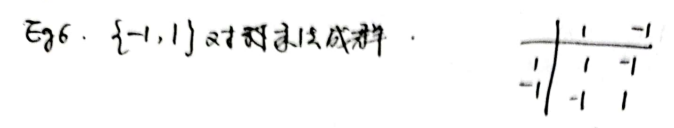 Eg 6. {-1, 1} 对乘法成群.
1 -1
1 1 -1
-1 -1 1